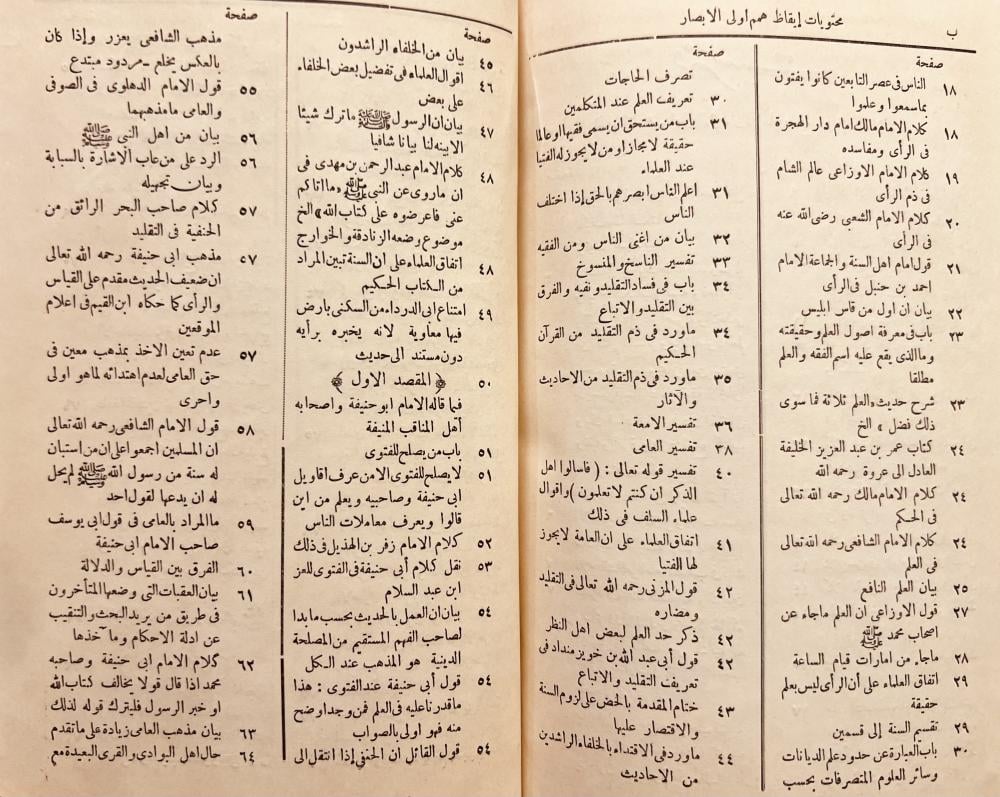 محتويات إيقاظ همم اولى الابصار
ب
صفحة
١٨ الناس فى عصر التابعين كانوا يفتون
بما سمعوا وعلموا
١٨ كلام الامام مالك امام دار الهجرة
فى الرأى ومفاسده
١٩ كلام الامام الاوزاعى عالم الشام
فى ذم الرأى
٢٠ كلام الامام الشعبى رضى الله عنه
فى الرأى
٢١ قول امام اهل السنة والجماعة الامام
احمد بن حنبل فى الرأى
٢٢ بيان ان اول من قاس ابليس
٢٣ باب فى معرفة اصول العلم وحقيقته
وما الذى يقع عليه اسم الفقه والعلم
مطلقا
٢٣ شرح حديث «العلم ثلاثة فما سوى
ذلك فضل» الخ
٢٤ كتاب عمر بن عبد العزيز الخليفة
العادل الى عروة رحمه الله
٢٤ كلام الامام مالك رحمه الله تعالى
فى الحكم
٢٤ كلام الامام الشافعى رحمه الله تعالى
فى العلم
٢٥ بيان العلم النافع
٢٧ قول الاوزاعى ان العلم ماجاء عن
اصحاب محمد ﷺ
٢٨ ماجاء من امارات قيام الساعة
٢٩ اتفاق العلماء على أن الرأى ليس بعلم
حقيقة
٢٩ تقسيم السنة إلى قسمين
٣٠ باب العبارة عن حدود علم الديانات
وسائر العلوم المتصرفات بحسب
صفحة
تصرف الحاجات
٣٠ تعريف العلم عند المتكلمين
٣١ باب من يستحق ان يسمى فقيها او عالما
حقيقة لا مجازا ومن لا يجوز له الفتيا
عند العلماء
٣١ اعلم الناس ابصرهم بالحق إذا اختلف
الناس
٣٢ بيان من اغنى الناس ومن الفقيه
٣٣ تفسير الناسخ والمنسوخ
٣٤ باب فى فساد التقليد ونفيه والفرق
بين التقليد والاتباع
٣٤ ماورد فى ذم التقليد من القرآن
الحكيم
٣٥ ماورد فى ذم التقليد من الاحاديث
والآثار
٣٦ تفسير الامعة
٣٨ تفسير العامى
٤٠ تفسير قوله تعالى : (فاسالوا اهل
الذكر ان كنتم لا تعلمون) واقوال
علماء السلف فى ذلك
٤١ اتفاق العلماء على ان العامة لا يجوز
لها الفتيا
٤٢ قول المزنى رحمه الله تعالى فى التقليد
ومضاره
٤٢ ذكر حد العلم لبعض اهل النظر
٤٢ قول أبى عبد الله بن خويز منداد فى
تعريف التقليد والاتباع
٤٣ ختام المقدمة بالحض على لزوم السنة
والاقتصار عليها
٤٤ ماورد فى الاقتداء بالخلفاء الراشدين
من الاحاديث
صفحة
٤٥ بيان من الخلفاء الراشدون
٤٦ اقوال العلماء فى تفضيل بعض الخلفاء
على بعض
٤٧ بيان ان الرسول ﷺ ماترك شيئا
الا بينه لنا بيانا شافيا
٤٨ كلام الامام عبد الرحمن بن مهدى فى
ان ماروى عن النبى ﷺ «ما اتاكم
عنى فاعرضوه على كتاب الله» الخ
موضوع وضعه الزنادقة والخوارج
٤٨ اتفاق العلماء على ان السنة تبين المراد
من الكتاب الحكيم
٤٩ امتناع ابى الدرداء من السكنى بارض
فيها معاوية لانه يخبره برأيه
دون مستند الى حديث
٥٠ ﴿ المقصد الاول ﴾
فيما قاله الامام ابو حنيفة واصحابه
أهل المناقب المنيفة
٥١ باب من يصلح للفتوى
٥١ لا يصلح للفتوى الا من عرف اقاويل
ابى حنيفة وصاحبيه ويعلم من اين
قالوا ويعرف معاملات الناس
٥٢ كلام الامام زفر بن الهذيل فى ذلك
٥٣ نقل كلام أبى حنيفة فى الفتوى للعز
ابن عبد السلام
٥٤ بيان ان العمل بالحديث بحسب ما بدا
لصاحب الفهم المستقيم من المصلحة
الدينية هو المذهب عند الكل
٥٤ قول أبى حنيفة عند الفتوى : هذا
ما قدرنا عليه فى العلم فمن وجد اوضح
منه فهو اولى بالصواب
٥٤ قول القائل ان الحنفى إذا انتقل الى
صفحة
مذهب الشافعى يعزر وإذا كان
بالعكس يخلع - مردود مبتدع
٥٥ قول الامام الدهلوى فى الصوفى
والعامى ما مذهبهما
٥٦ بيان من اهل النبى ﷺ
٥٦ الرد على من عاب الاشارة بالسبابة
وبيان تجهيله
٥٧ كلام صاحب البحر الرائق من
الحنفية فى التقليد
٥٧ مذهب ابى حنيفة رحمه الله تعالى
ان ضعيف الحديث مقدم على القياس
والرأى كما حكاه ابن القيم فى اعلام
الموقعين
٥٧ عدم تعين الاخذ بمذهب معين فى
حق العامى لعدم اهتدائه لما هو اولى
واحرى
٥٨ قول الامام الشافعى رحمه الله تعالى
ان المسلمين اجمعوا على ان من استبان
له سنة من رسول الله ﷺ لم يحل
له ان يدعها لقول احد
٥٩ ما المراد بالعامى فى قول ابى يوسف
صاحب الامام ابى حنيفة
٦٠ الفرق بين القياس والدلالة
٦١ بيان العقبات التى وضعها المتأخرون
فى طريق من يريد البحث والتنقيب
عن ادلة الاحكام ومآخذها
٦٢ كلام الامام ابى حنيفة وصاحبه
محمد اذا قال قولا يخالف كتاب الله
او خبر الرسول فليترك قوله لذلك
٦٣ بيان مذهب العامى زيادة على ما تقدم
٦٤ حال اهل البوادى والقرى البعيدة مع